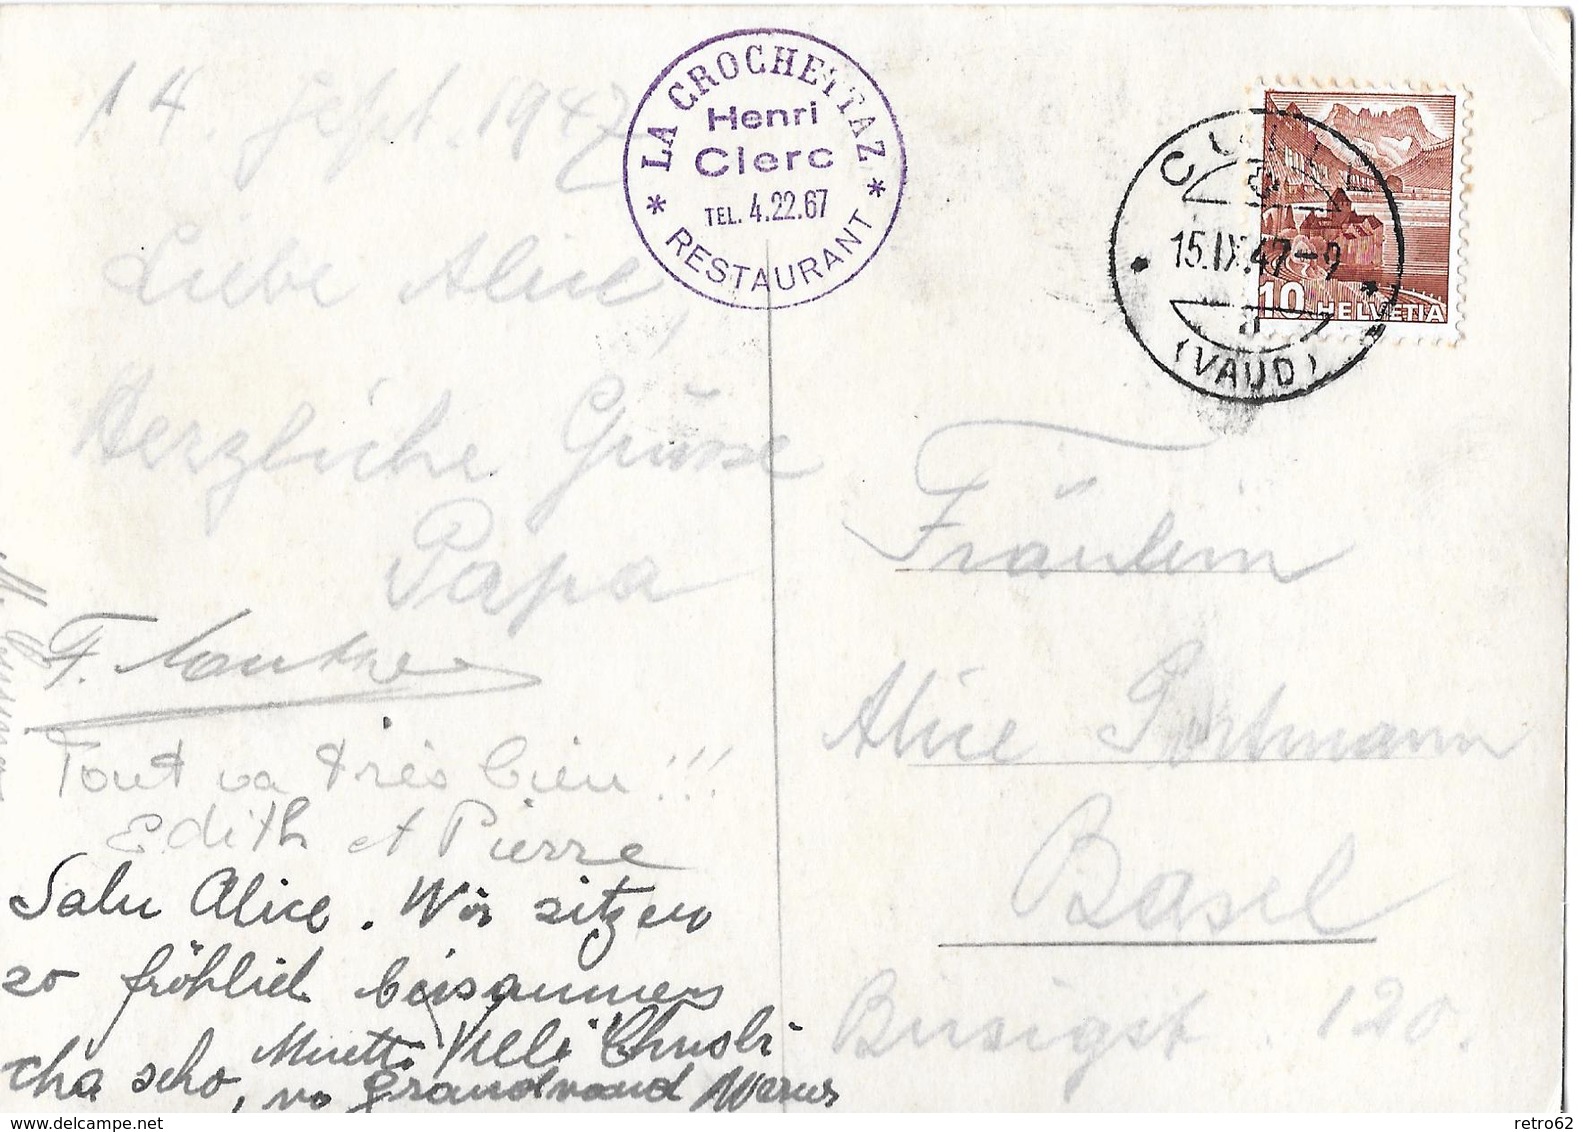 14. Sept. 1947
Liebe Alice!
Herzliche Grüsse
Papa
F.
Tout va très bien!!!
Edith et Pierre
Salu Alice. Wir sitzen
so fröhlich beisammen
Muetti
cha scho,
LA CROCHETTAZ
Henri
Clerc
TEL. 4.22.67
* RESTAURANT *
CULLY
15.IX.47-9
a
(VAUD)
10 HELVETIA
Fräulein
Alice Portmann
Basel
Birsigst. 120.
delcampe.net
retro62